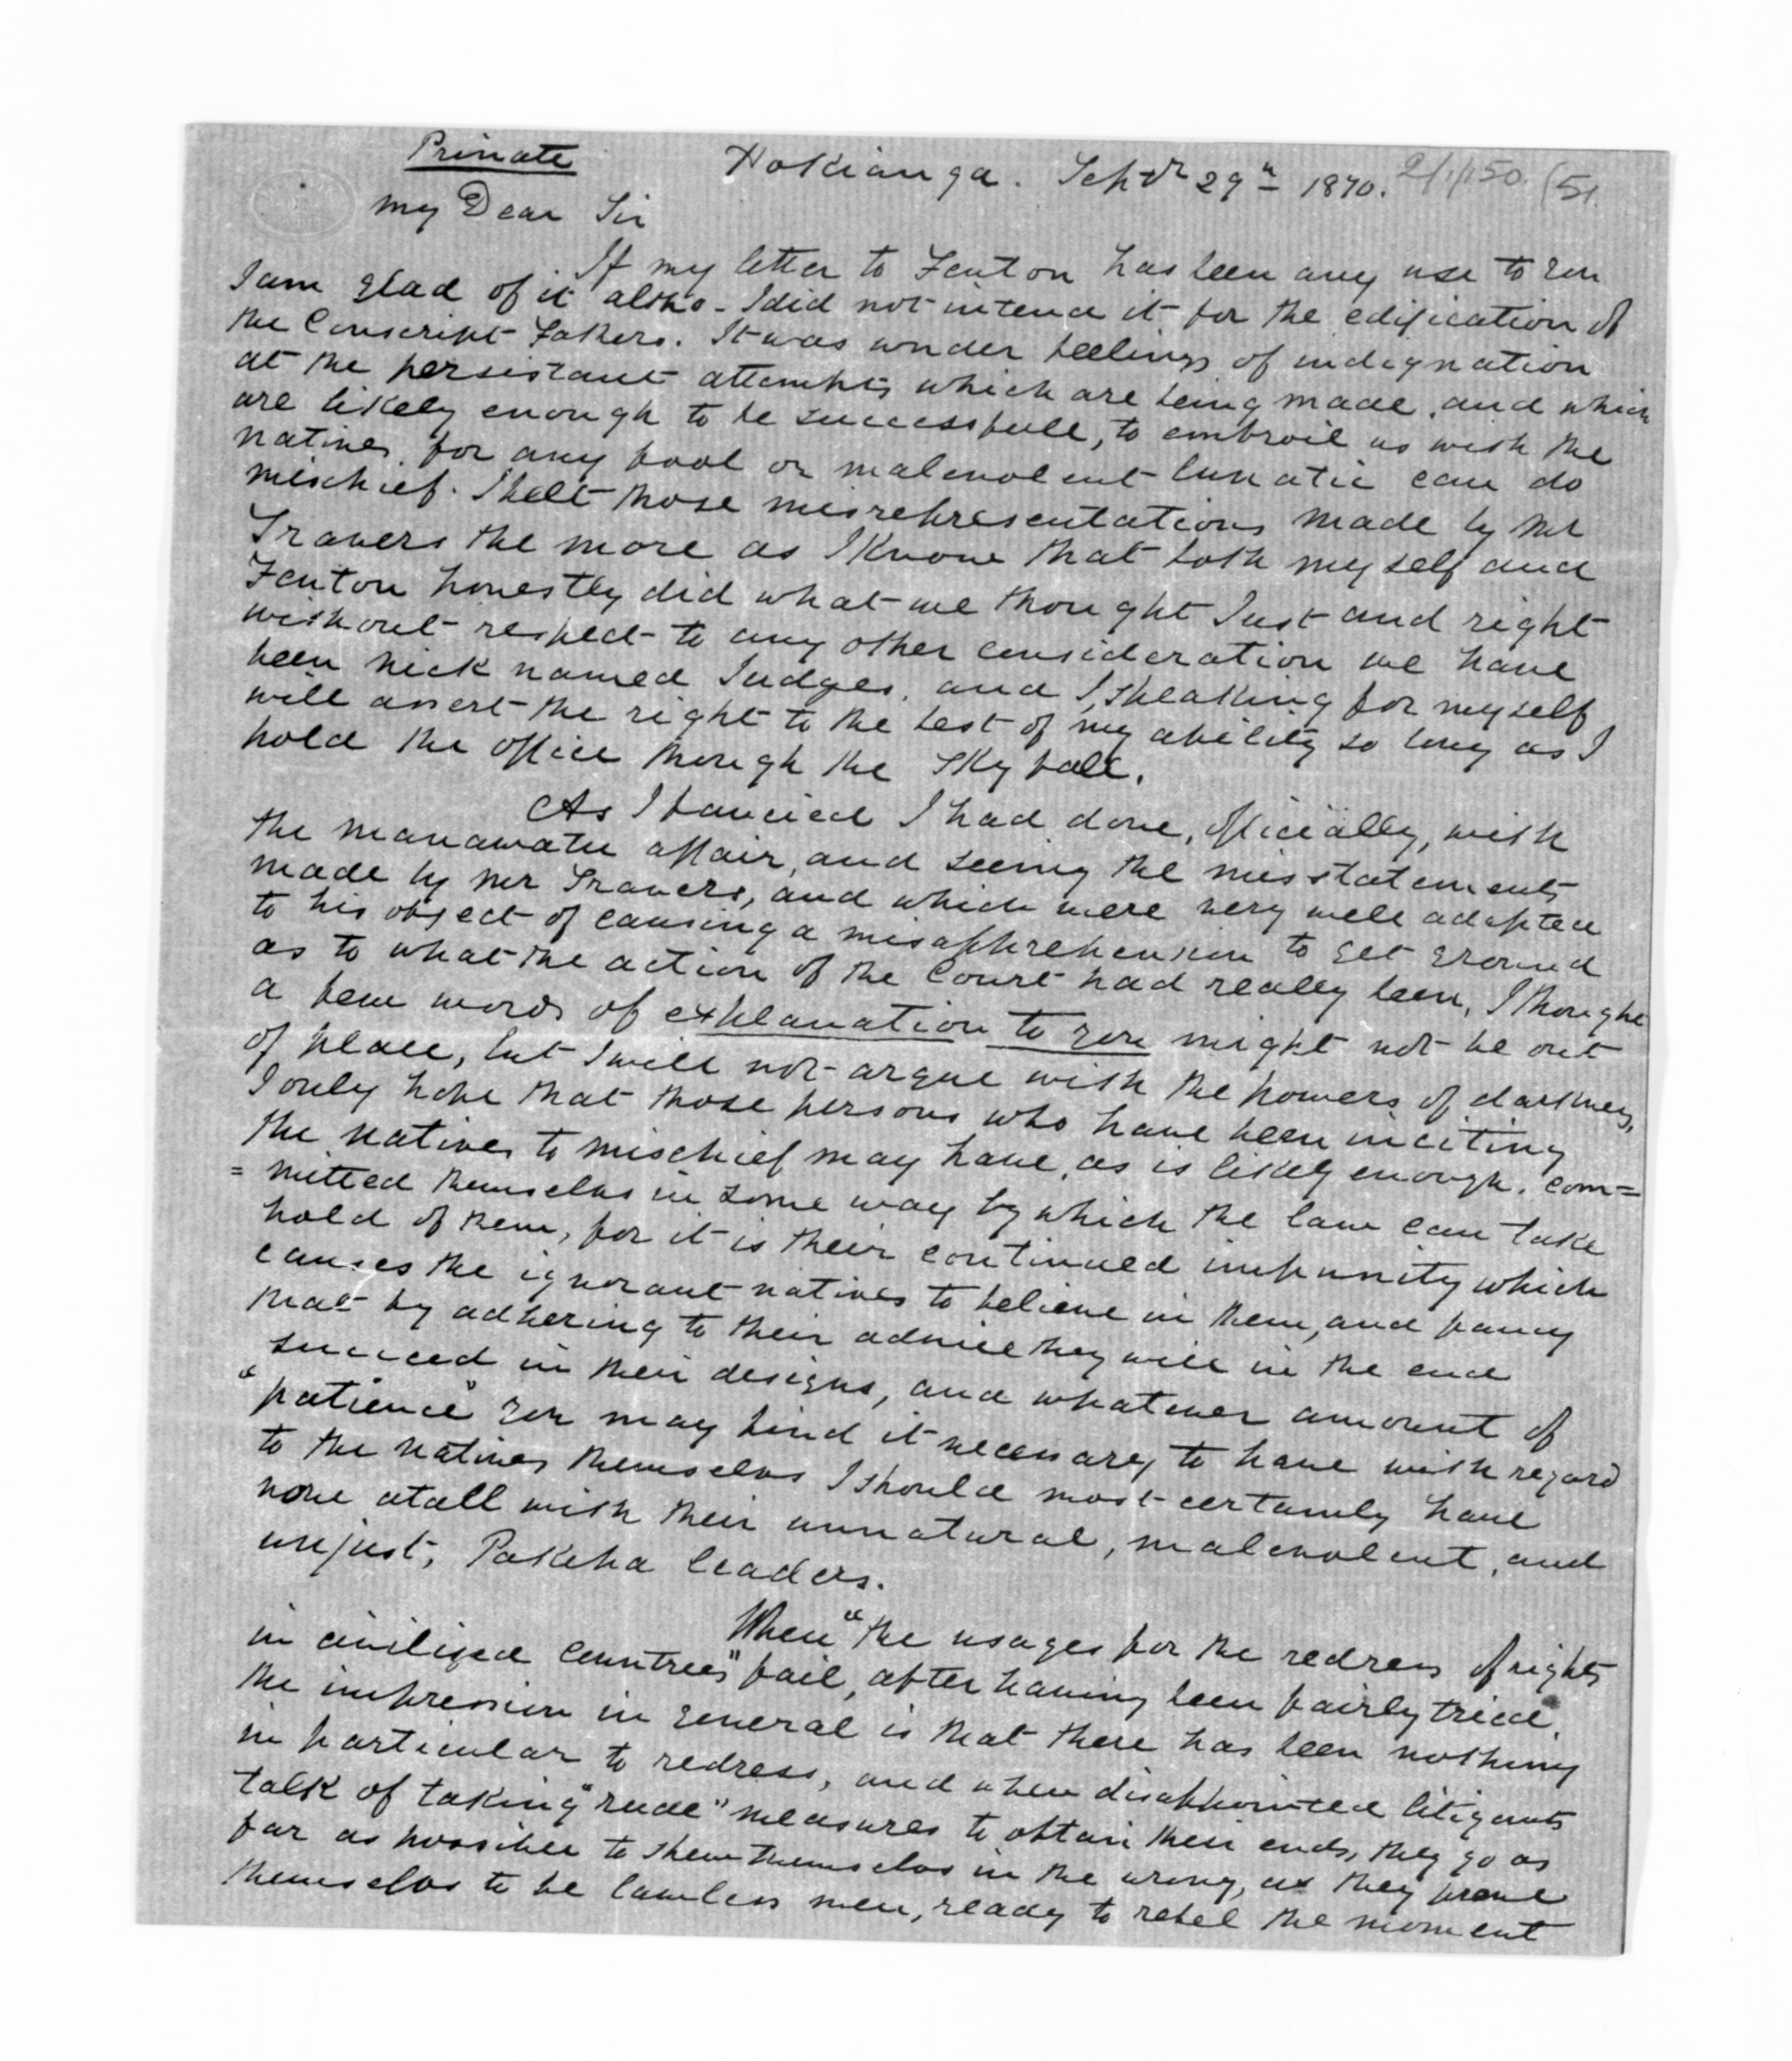 Private Hokianga. Septr 29th 1870. 2/1/150. (51.
my Dear Sir
If my letter to Fenton has been any use to you
I am glad of it also - I did not intend it for the edification of
the Conscript Fathers. It was under feelings of indignation
at the persistant attempts which are being made, and which
are likely enough to be successfull, to embroil us with the
natives, for any fool or malevolent lunatic can do
mischief. I felt those misrepresentations made by Mr
Travers the more as I know that both myself and
Fenton honestly did what we thought Just and right
without respect to any other consideration we have
been nick named Judges, and I, speaking for myself
will assert the right to the best of my ability so long as I
hold the office though the sky fall.
As I fancied I had done, officially, with
the Manawatu affair, and seeing the misstatements
made by Mr Travers, and which were very well adapted
to his object of causing a misapprehension to get ground
as to what the action of the Court had really been, I thought
a few words of explanation to you might not be out
of place, but I will not argue with the powers of darkness,
I only hope that those persons who have been inciting
the natives to mischief may have, as is likely enough, com=
=mitted themselves in some way by which the law can take
hold of them, for it is their continued impunity which
causes the ignorant natives to believe in them, and fancy
that by adhering to their advice they will in the end
succeed in their designs, and whatever amount of
"patience" you may find it necessary to have with regard
to the natives themselves I should most certainly have
none atall with their unnatural, malevolent, and
unjust, Pakeha leaders.
When "the usages for the redress of rights
in civilized countrees" fail, after having been fairly tried,
the impression in general is that there has been nothing
in particular to redress, and when disappointed litigants
talk of taking "rude" measures to obtain their ends, they go as
far as possible to shew themselves in the wrong, as they prove
themselves to be lawless men, ready to rebel the moment